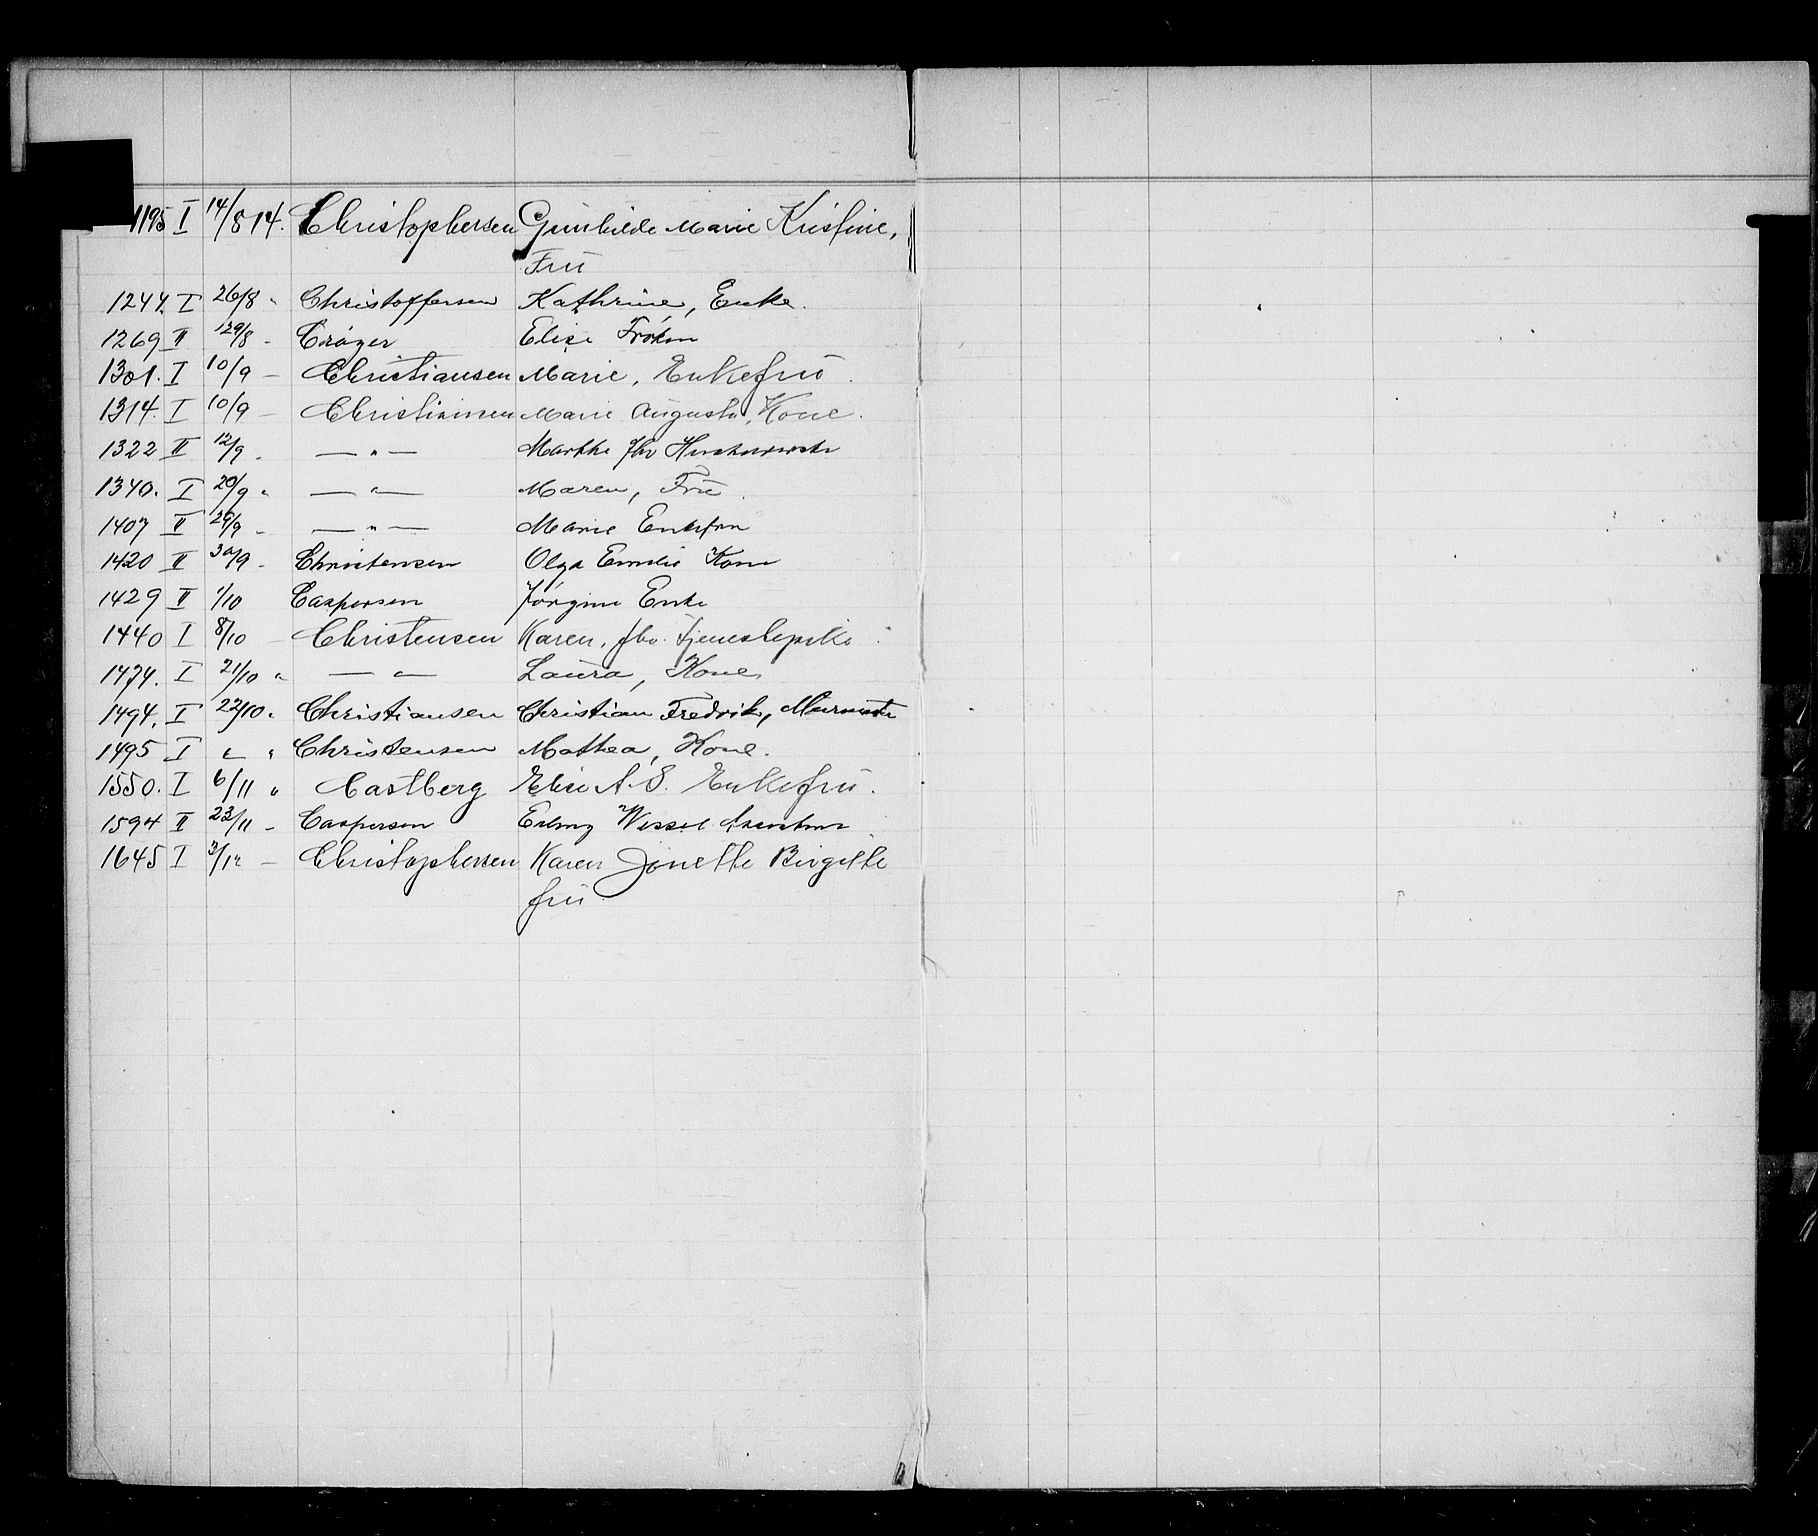 1195 I 14/8 14. Christophersen Gunhilde Marie Kristine,
Frü
1244. I 26/8 " Christoffersen Kathrine, Enke.
1269 II 29/8 - Cröger Elise Frøken
1301. I 10/9 — Christiansen Marie, Enkefrü.
1314. I 10/9 — Christiansen Marie Augusta, Kone.
1322 II 12/9 - — " — Marthe fhv
1340. I 20/9 " — " — Maren, Frü.
1407 II 29/9 - — " — Marie Enkefru
1420 II 30/9 - Christensen Olga Emilie Kone
1429 II 1/10 Caspersen Jørgine Enke
1440 I 8/10 — Christensen Karen, fhv. Tjenestepike.
1474. I 21/10 " — " — Laura, Kone.
1494. I 22/10 " Christiansen Christian Fredrik, Murmester
1495 I " " Christensen Mathea, Kone.
1550. I 6/11 " Castberg Elise A. S. Enkefrü.
1594 II 23/11 - Caspersen Erling Wessel
1645 I 3/12 — Christophersen Karen Jonette Birgitte
frü